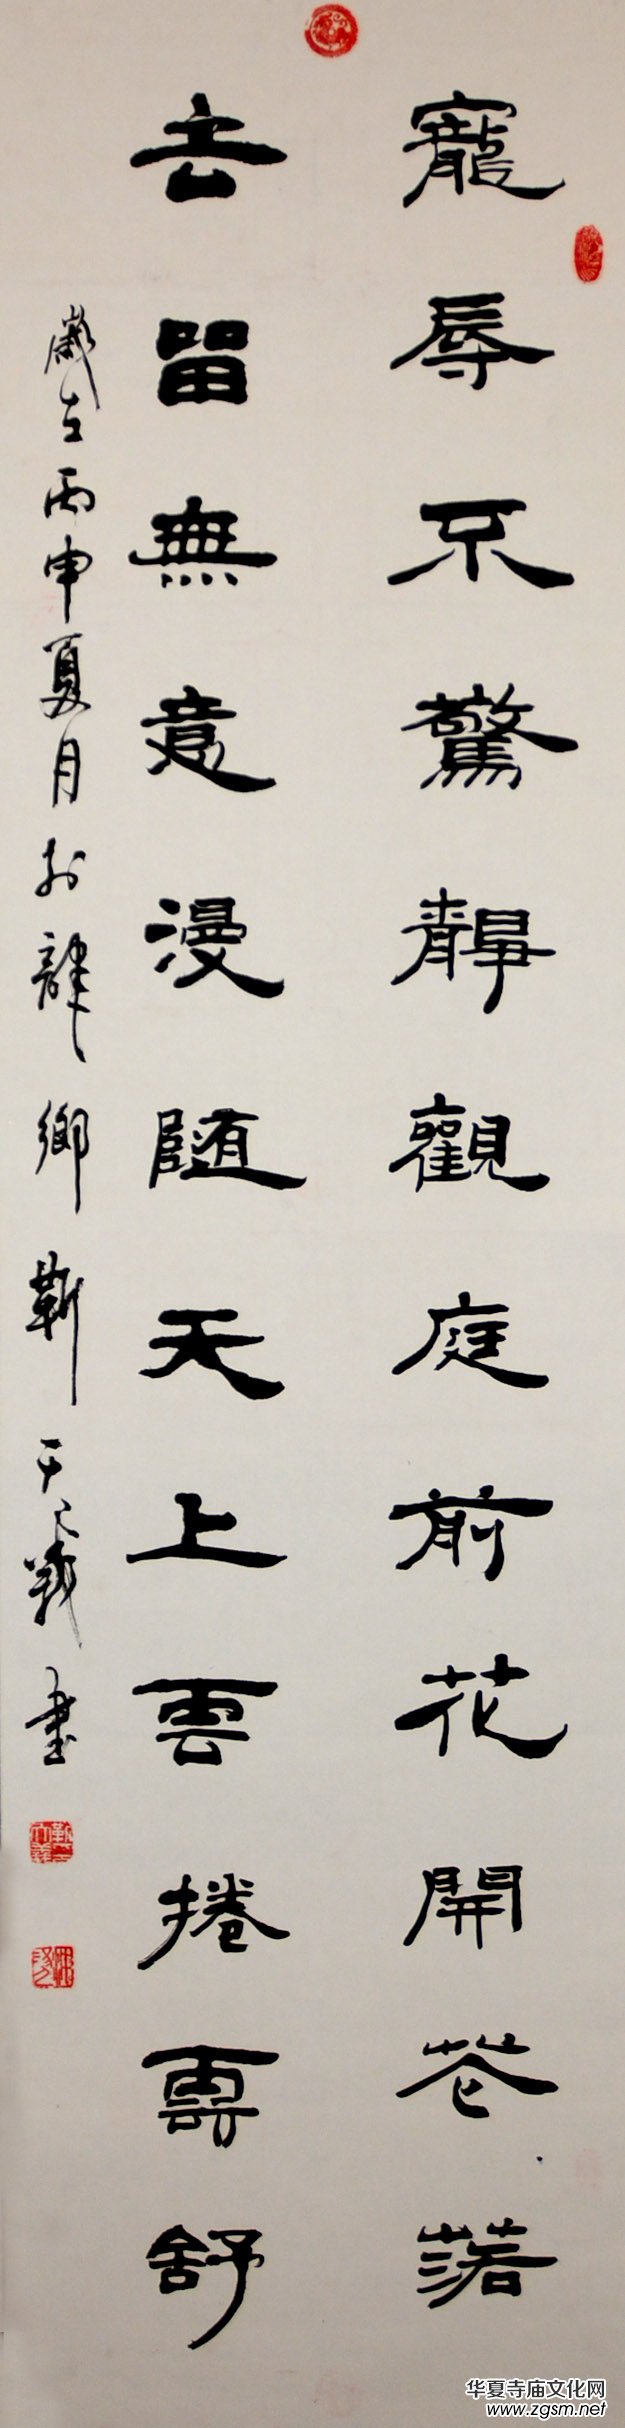 寵辱不驚靜觀庭前花開花落
去留無意漫隨天上雲捲雲舒
歲在丙申夏月於譚鄉靳天義書
华夏寺庙文化网
www.zgsm.net